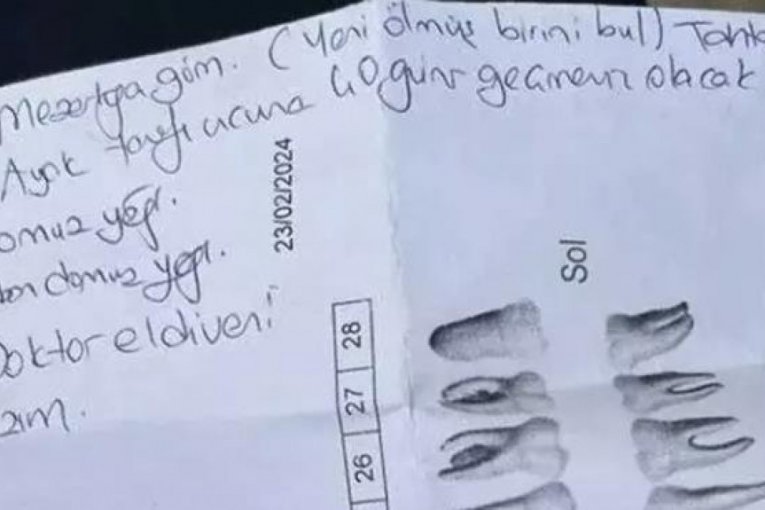 Mezarlığa göm. (Yeni ölmüş birini bul)
Ayak tarafı ucuna 40 günü geçmemiş olacak
domuz yağı.
domuz yağı.
Doktor eldiveni
23/02/2024
Sol
28
27
26